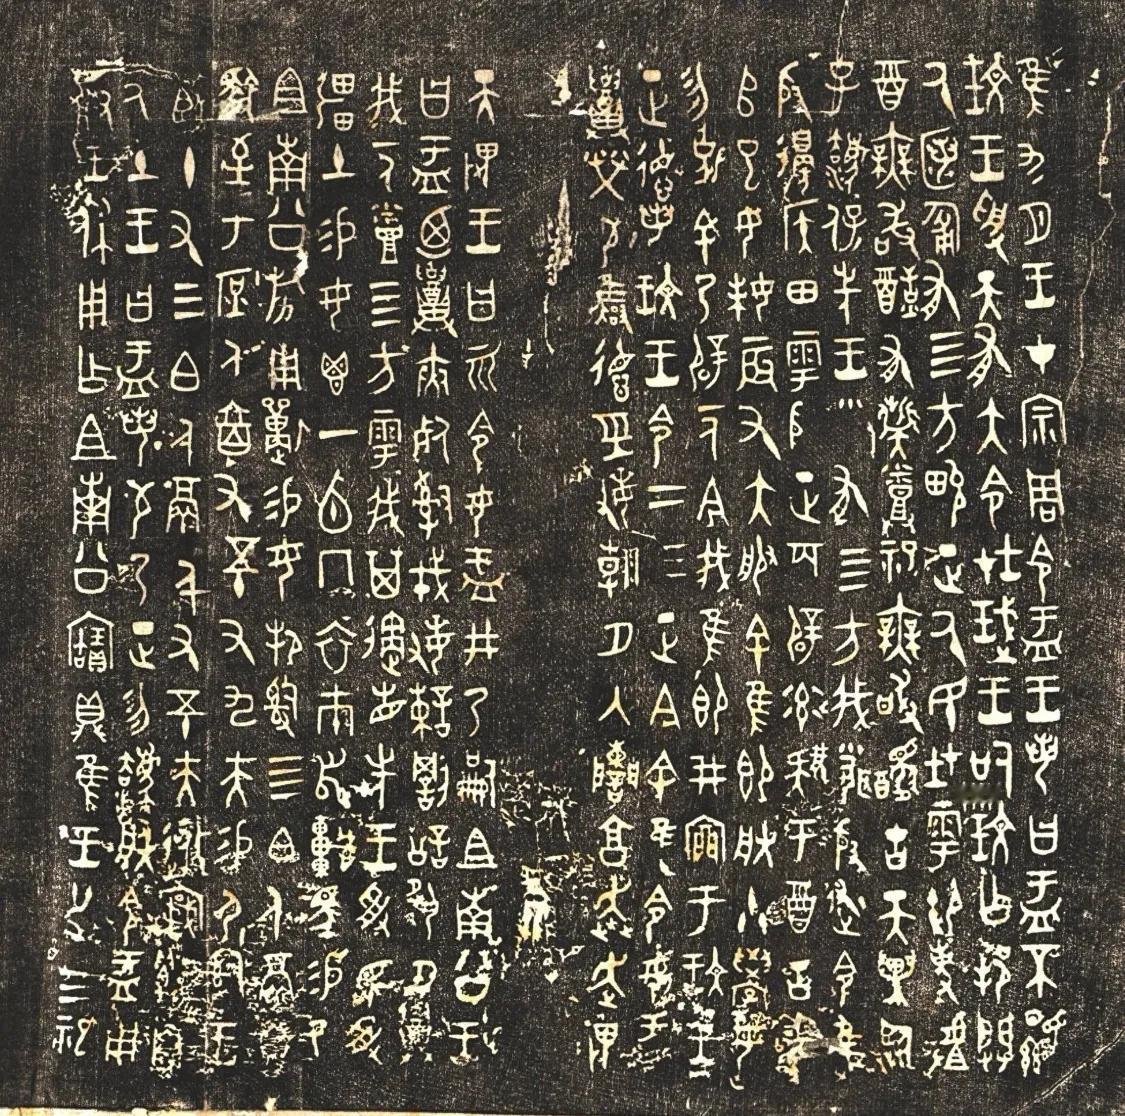 隹九月王才宗周令盂王若曰盂不顯
玟王受天有大令在珷王嗣玟乍邦闢
厥匿匍有四方畯正厥民在雩御事𠭯
酉無敢酖有祡烝祀無敢擾古天異臨
子灋保先王□有四方我聞殷述令隹
殷邊侯田雩殷正百辟率肄于酉古喪
𠂤巳女妹辰又大服余隹即朕小學女
勿剋余乃辟一人今我隹即井𣐺于玟王
正德若玟王令二三正今余隹令女盂
召榮敬雍德巠敏朝夕入讕享奔走畏
天畏王曰而令女盂井乃嗣且南公王
曰盂迺召夾死司戎敏諫罰訟夙夕召
我一人烝四方雩我其遹省先王受民受
彊土易女鬯一卣冂衣巿舄車馬易乃
且南公旂用遘易女邦司四白人鬲自
馭至于庶人六百又五十又九夫易尸司王
臣十又三白人鬲千又五十夫遷自
厥土王曰盂若敬乃正勿灋朕令盂用
對王休用乍且南公寶鼎隹王廿又三祀